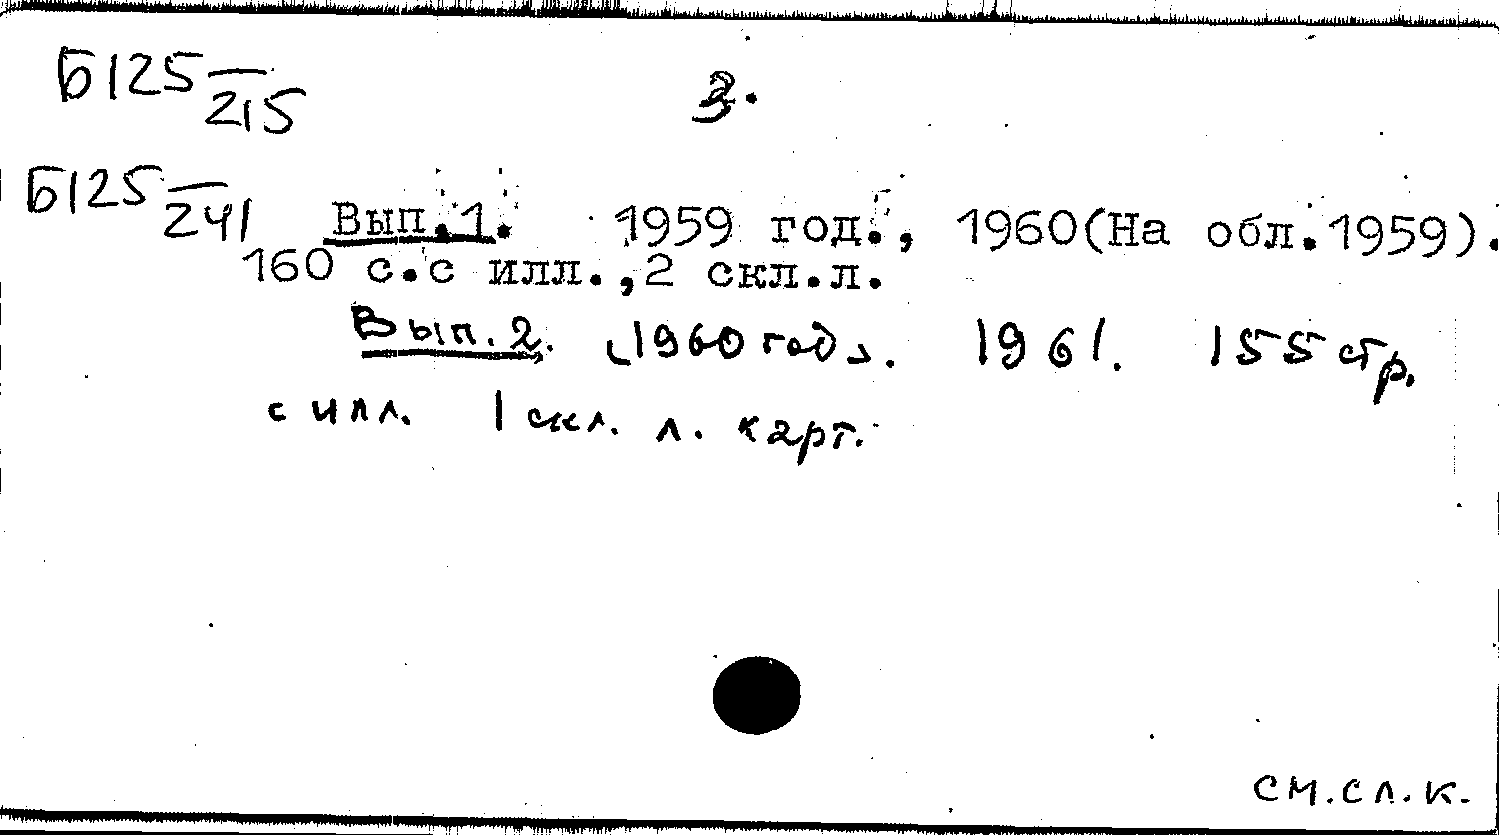 Б125
215
3.
Б125
241
Вып.1. 1959 год., 1960(На обл.1959).
160 с.с илл.,2 скл.л.
Вып. 2. (1960 год). 1961. 155 стр.
с илл. 1 скл. л. карт.
см.сл.к.